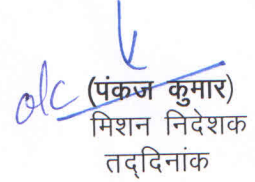 o/c (पंकज कुमार)
मिशन निदेशक
तद्दिनांक